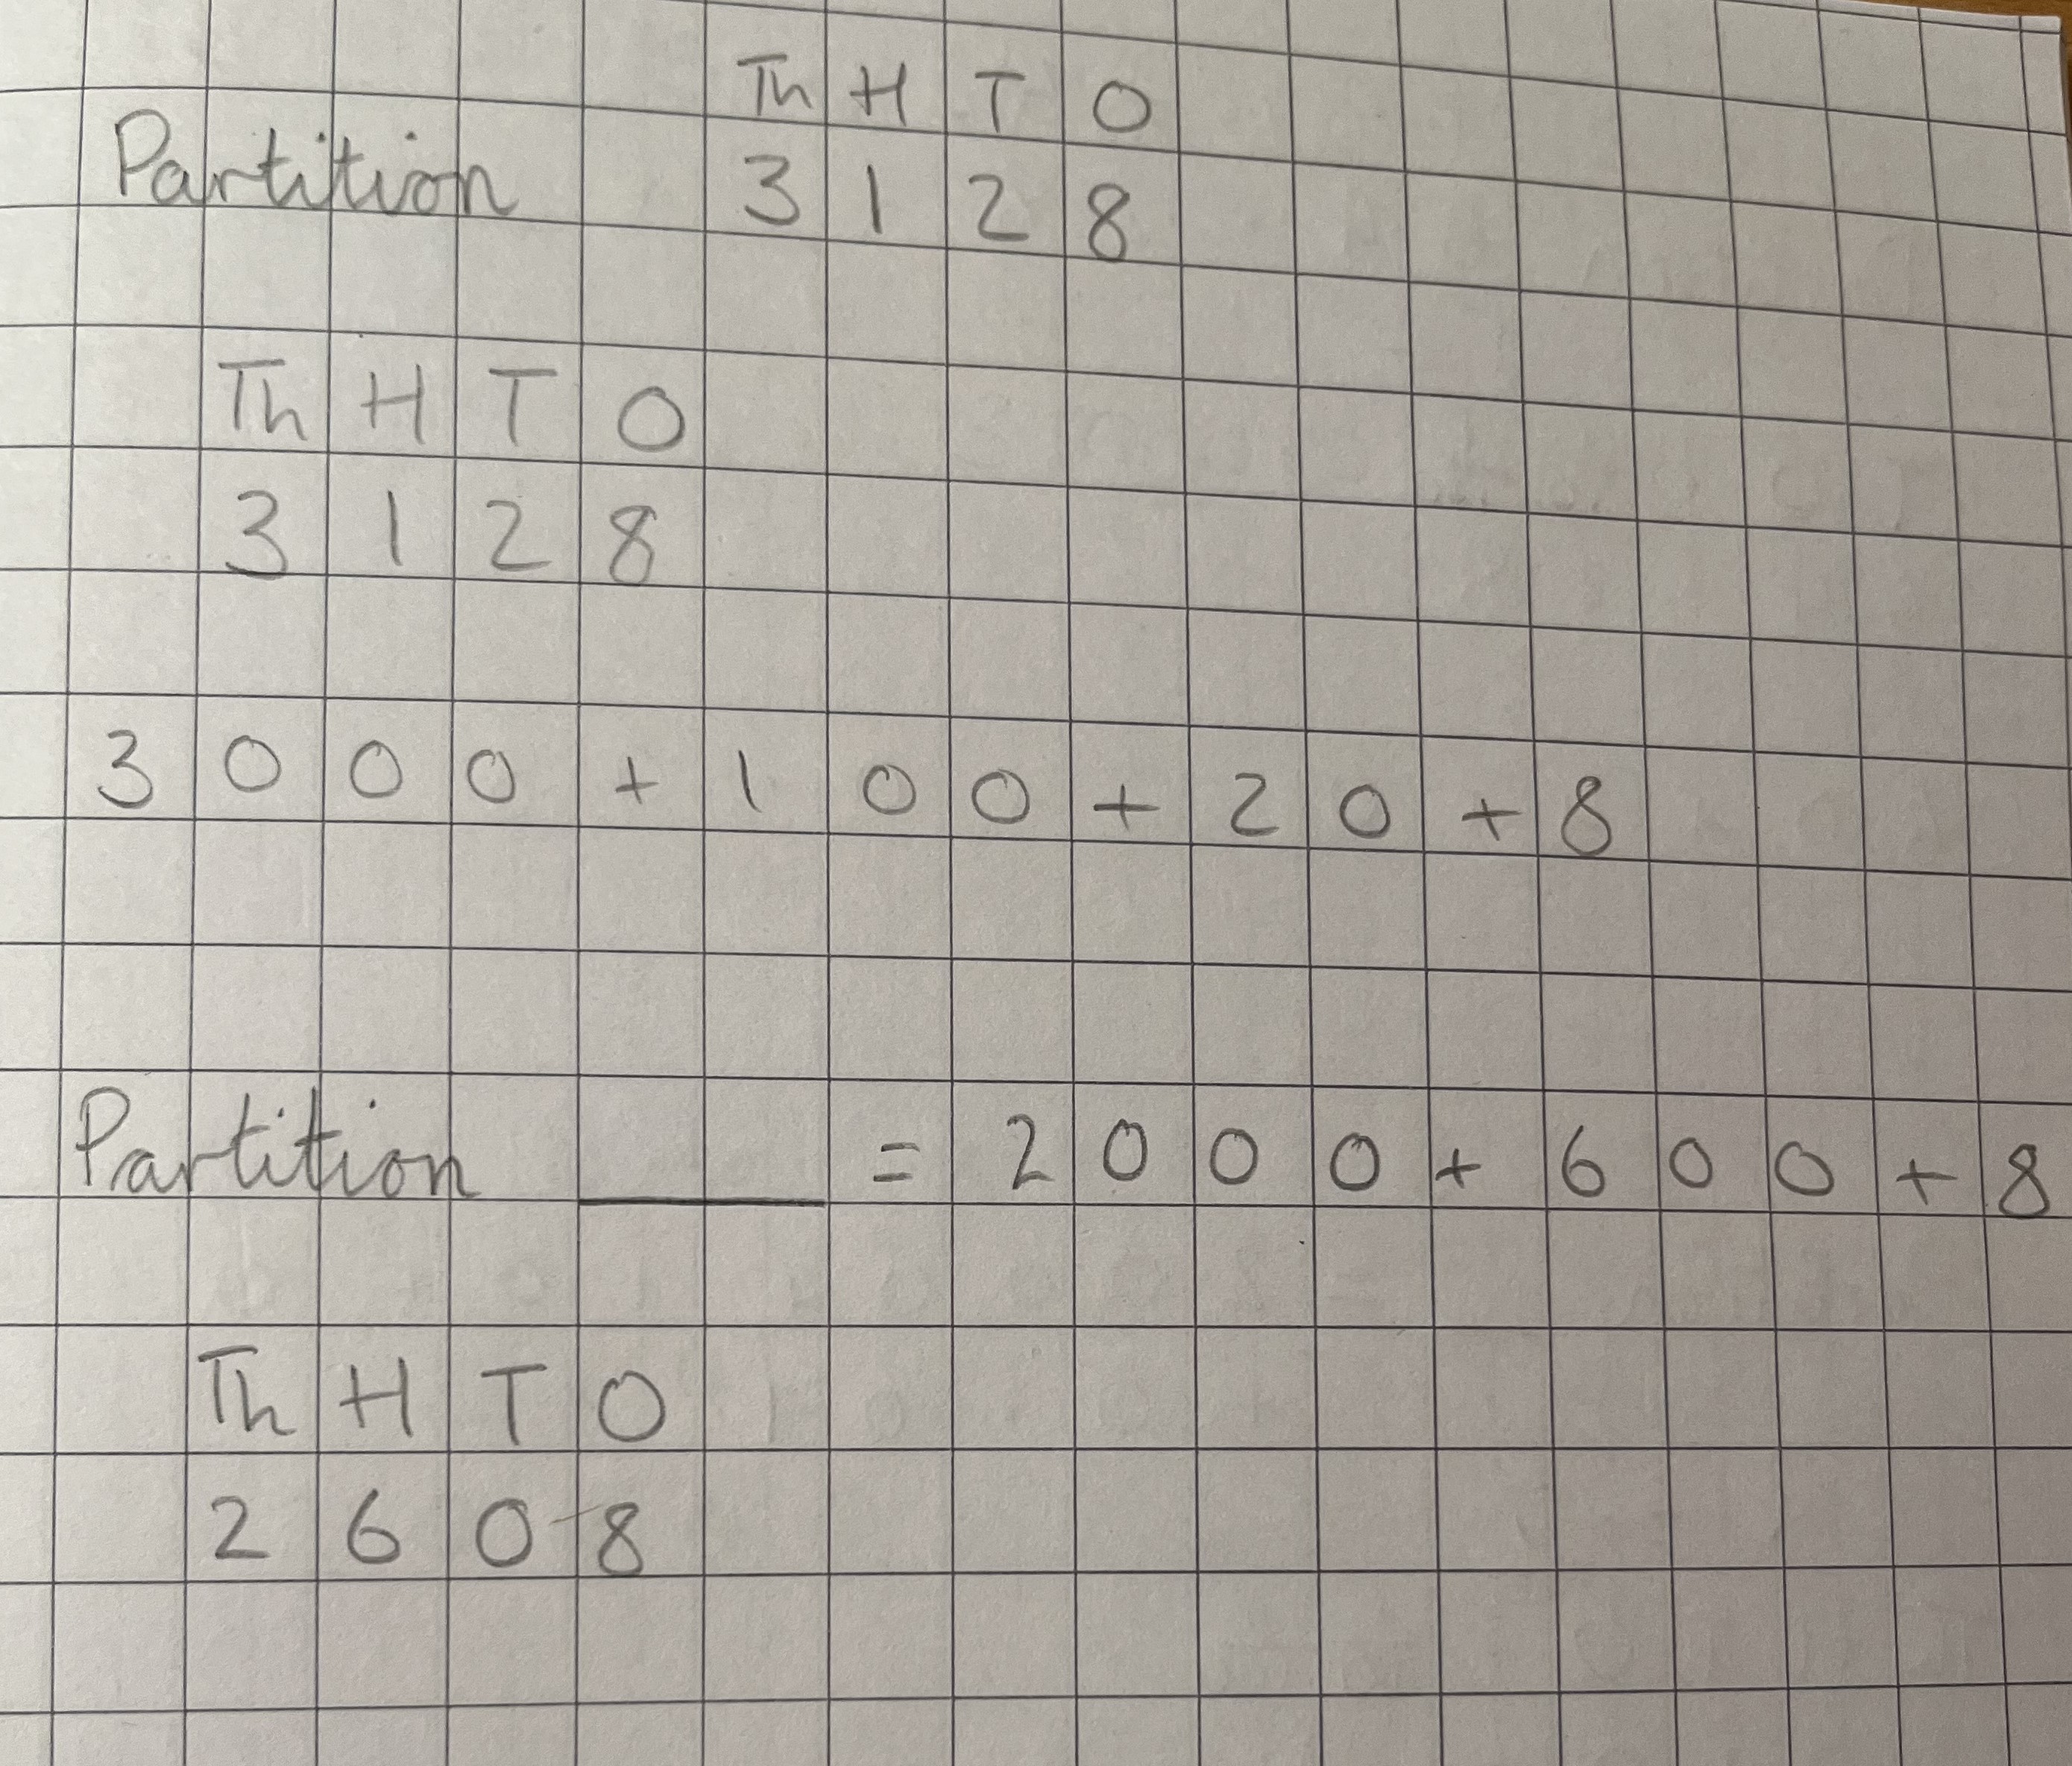 Th H T O
Partition 3 1 2 8
Th H T O
3 1 2 8
3 0 0 0 + 1 0 0 + 2 0 + 8
Partition ____ = 2 0 0 0 + 6 0 0 + 8
Th H T O
2 6 0 8